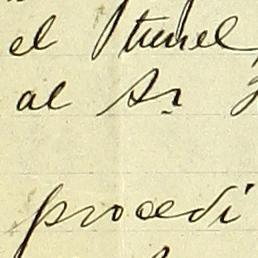 el tunel
al Sr
procedi